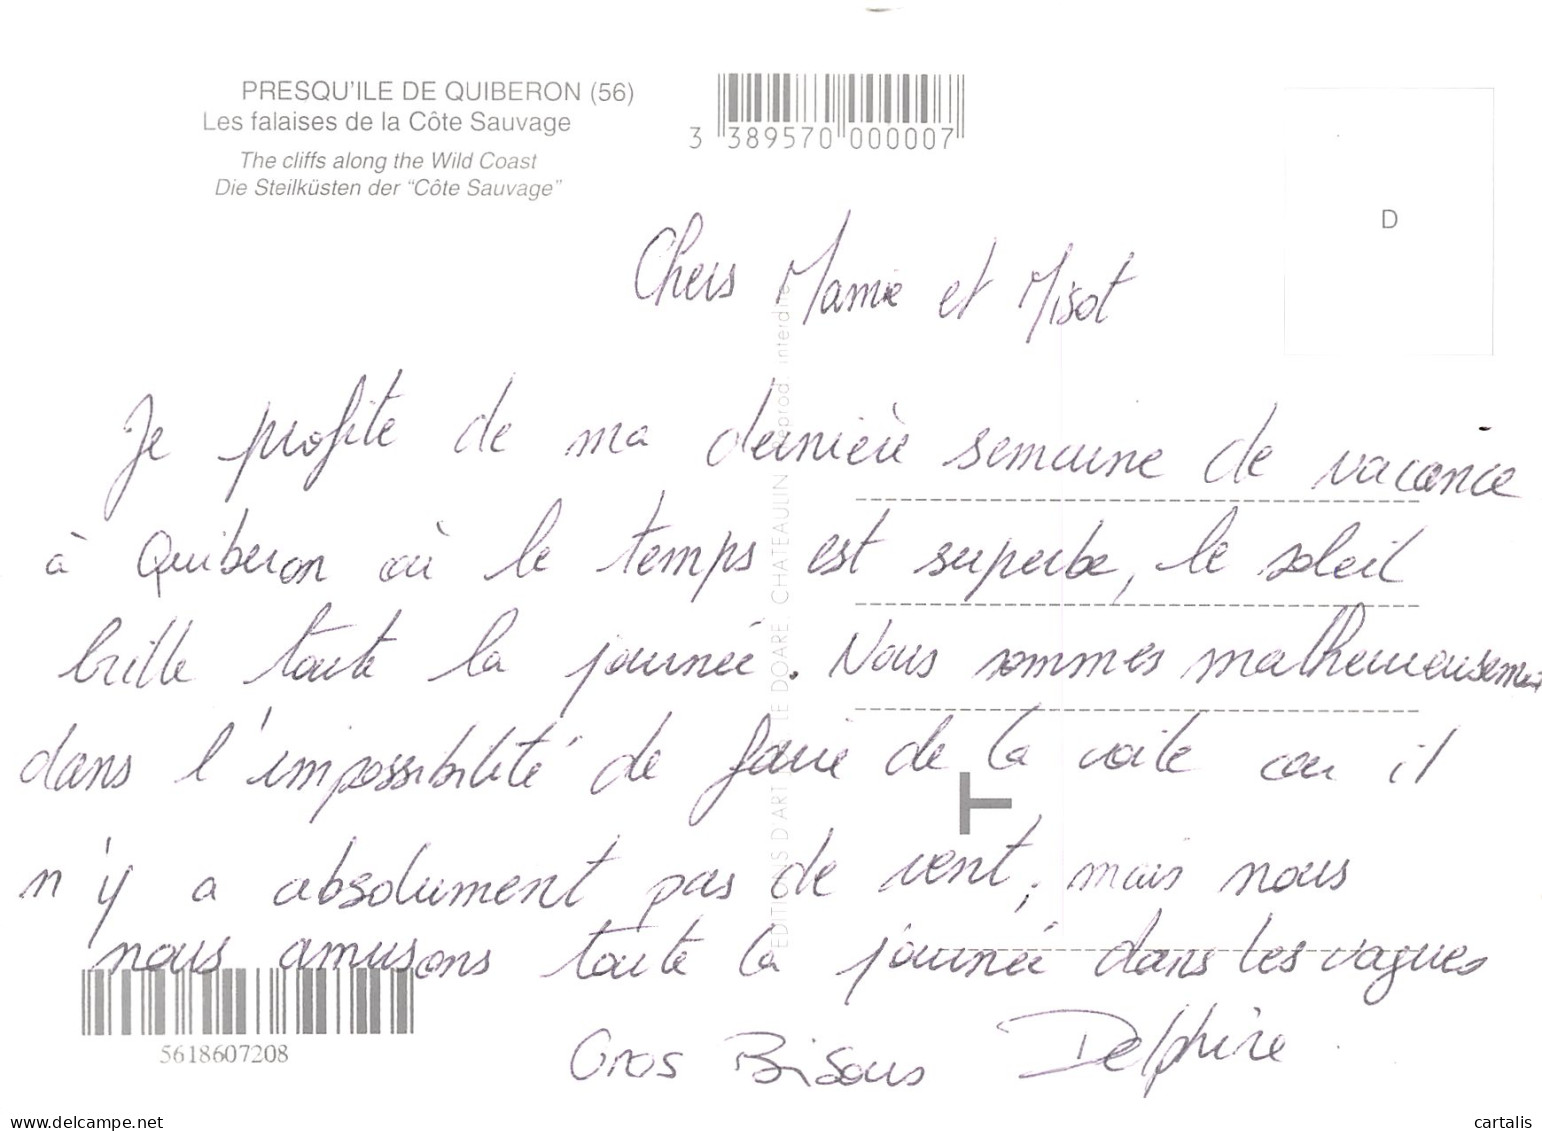 PRESQU'ILE DE QUIBERON (56)
Les falaises de la Côte Sauvage
The cliffs along the Wild Coast
Die Steilküsten der "Côte Sauvage"
3 389570 000007
D
Chers Mamie et Misot
Je profite de ma dernière semaine de vacance
à Quiberon où le temps est superbe, le soleil
brille toute la journée. Nous sommes malheureusement
dans l'impossibilité de faire de la voile car il
n'y a absolument pas de vent, mais nous
nous amusons toute la journée dans les vagues
Gros Bisous Delphine
EDITIONS D'ART LE DOARE CHATEAULIN Reprod. interdite
T
5618607208
delcampe.net
cartalis